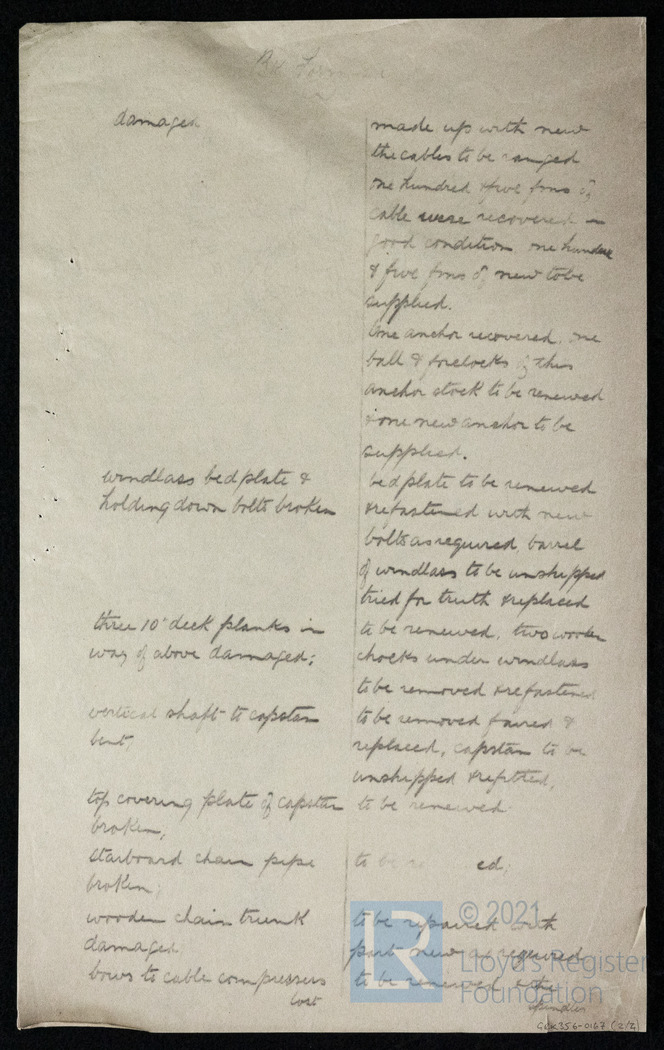 damaged
made up with new
the cables to be ranged
one hundred & five fms of
cable were recovered in
good condition one hundred
& five fms of new to be
supplied.
One anchor recovered, one
ball & forelocks of this
anchor stock to be renewed
& one new anchor to be
supplied.
windlass bedplate &
holding down bolts broken
bedplate to be renewed
& refastened with new
bolts as required barrel
of windlass to be unshipped
tried for truth & replaced
three 10" deck planks in
way of above damaged;
to be renewed, two wooden
chocks under windlass
to be removed & refastened
vertical shaft to capstan
bent,
to be removed faired &
replaced, capstan to be
unshipped & refitted,
top covering plate of capstan
broken;
to be renewed
starboard chain pipe
broken;
to be ed;
wooden chain trunk
damaged
to be repaired with
part new as required
bows to cable compressors
lost
to be renewed
GLK356-0167 (2/2)
© 2021
LR
Lloyd's Register
Foundation